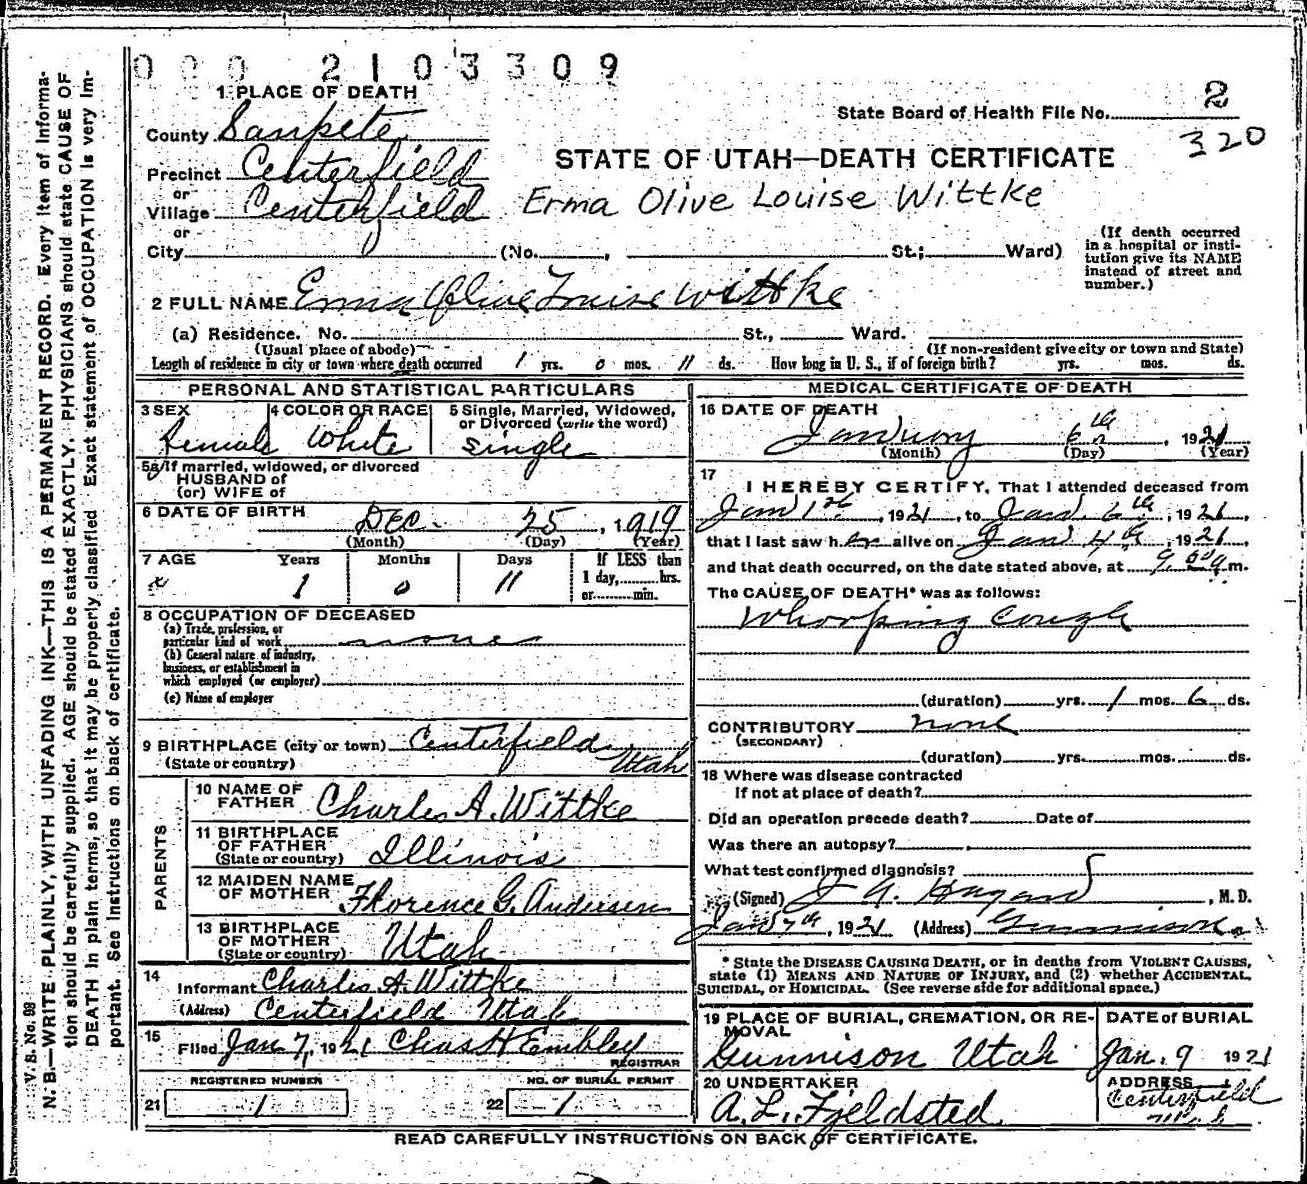 000 2103309
1 PLACE OF DEATH
State Board of Health File No. 2
320
County Sanpete
STATE OF UTAH—DEATH CERTIFICATE
Precinct Centerfield
or
Village Centerfield
Erma Olive Louise Wittke
or
City (No. , St.; Ward)
(If death occurred in a hospital or insti-
tution give its NAME instead of street and number.)
2 FULL NAME Erma Olive Louise Wittke
(a) Residence. No. St., Ward.
(Usual place of abode) (If non-resident give city or town and State)
Length of residence in city or town where death occurred 1 yrs. 0 mos. 11 ds. How long in U. S., if of foreign birth? yrs. mos. ds.
PERSONAL AND STATISTICAL PARTICULARS
3 SEX Female
4 COLOR OR RACE White
5 Single, Married, Widowed, or Divorced (write the word)
Single
5a If married, widowed, or divorced
HUSBAND of
(or) WIFE of
6 DATE OF BIRTH
Dec. 25, 1919
(Month) (Day) (Year)
7 AGE Years Months Days If LESS than
1 0 11 1 day, hrs.
or min.
8 OCCUPATION OF DECEASED
(a) Trade, profession, or
particular kind of work none
(b) General nature of industry,
business, or establishment in
which employed (or employer)
(c) Name of employer
9 BIRTHPLACE (city or town) Centerfield
(State or country) Utah
PARENTS
10 NAME OF FATHER Charles A. Wittke
11 BIRTHPLACE OF FATHER
(State or country) Illinois
12 MAIDEN NAME OF MOTHER Florence G. Andersen
13 BIRTHPLACE OF MOTHER
(State or country) Utah
14
Informant Charles A. Wittke
(Address) Centerfield Utah
15
Filed Jan 7, 1921 Chas H Embley
REGISTRAR
REGISTERED NUMBER NO. OF BURIAL PERMIT
21 1 22 1
MEDICAL CERTIFICATE OF DEATH
16 DATE OF DEATH
January 6th, 1921
(Month) (Day) (Year)
17
I HEREBY CERTIFY, That I attended deceased from
Jan 1st, 1921, to Jan. 6th, 1921,
that I last saw her alive on Jan 4th, 1921,
and that death occurred, on the date stated above, at 9 m.
The CAUSE OF DEATH* was as follows:
Whooping Cough
(duration) yrs. 1 mos. 6 ds.
CONTRIBUTORY none
(SECONDARY)
(duration) yrs. mos. ds.
18 Where was disease contracted
if not at place of death?
Did an operation precede death? Date of
Was there an autopsy?
What test confirmed diagnosis?
(Signed) J A Hagan, M. D.
Jan 7th, 1921 (Address) Gunnison
* State the DISEASE CAUSING DEATH, or in deaths from VIOLENT CAUSES,
state (1) MEANS AND NATURE OF INJURY, and (2) whether ACCIDENTAL,
SUICIDAL, or HOMICIDAL. (See reverse side for additional space.)
19 PLACE OF BURIAL, CREMATION, OR RE-
MOVAL
Gunnison Utah
DATE of BURIAL
Jan. 9 1921
20 UNDERTAKER
A. L. Fjeldsted
ADDRESS
Centerfield
Utah
READ CAREFULLY INSTRUCTIONS ON BACK OF CERTIFICATE.
V. S. No. 99
N. B.—WRITE PLAINLY, WITH UNFADING INK—THIS IS A PERMANENT RECORD. Every item of informa-
tion should be carefully supplied. AGE should be stated EXACTLY. PHYSICIANS should state CAUSE OF
DEATH in plain terms, so that it may be properly classified. Exact statement of OCCUPATION is very im-
portant. See instructions on back of certificate.